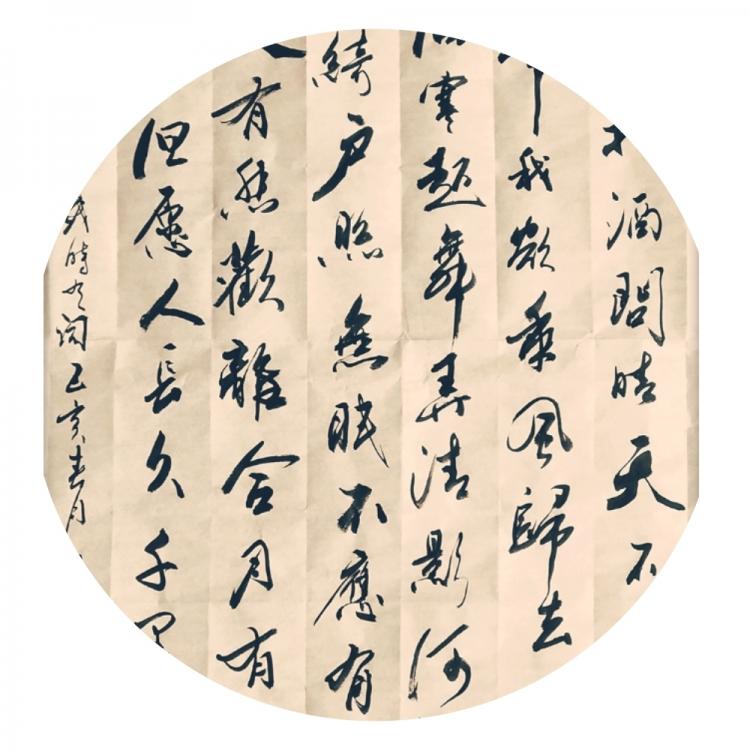 酒問晴天不
年我欲乘風歸去
寒起舞弄清影何
綺戶照無眠不應有
人有悲歡離合月有
但愿人長久千里
時詞己亥春月